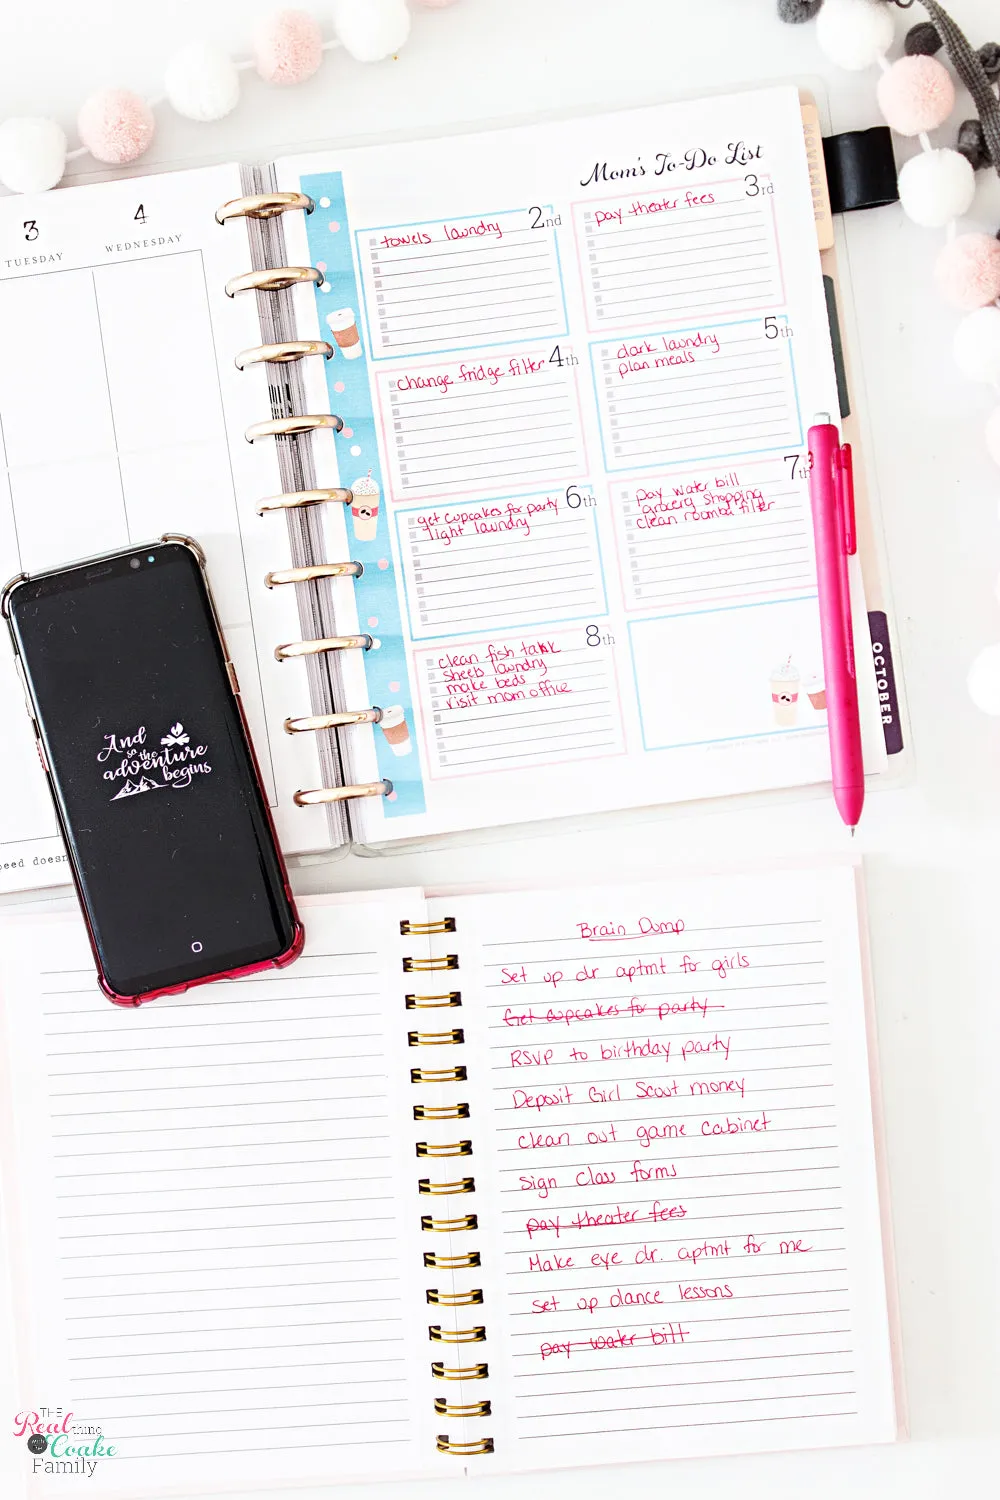 3
TUESDAY
4
WEDNESDAY
Mom's To-Do List
2nd
towels laundry
3rd
pay theater fees
4th
change fridge filter
5th
dark laundry
plan meals
6th
get cupcakes for party
light laundry
7th
pay water bill
grocery shopping
clean roomba filter
8th
clean fish tank
sheets laundry
make beds
visit mom office
NOVEMBER
OCTOBER
And
so the
adventure
begins
Brain Dump
Set up dr aptmt for girls
Get cupcakes for party
RSVP to birthday party
Deposit Girl Scout money
Clean out game cabinet
Sign Class forms
pay theater fees
Make eye dr. aptmt for me
Set up dance lessons
pay water bill
THE
Real thing
with the
Coake
Family